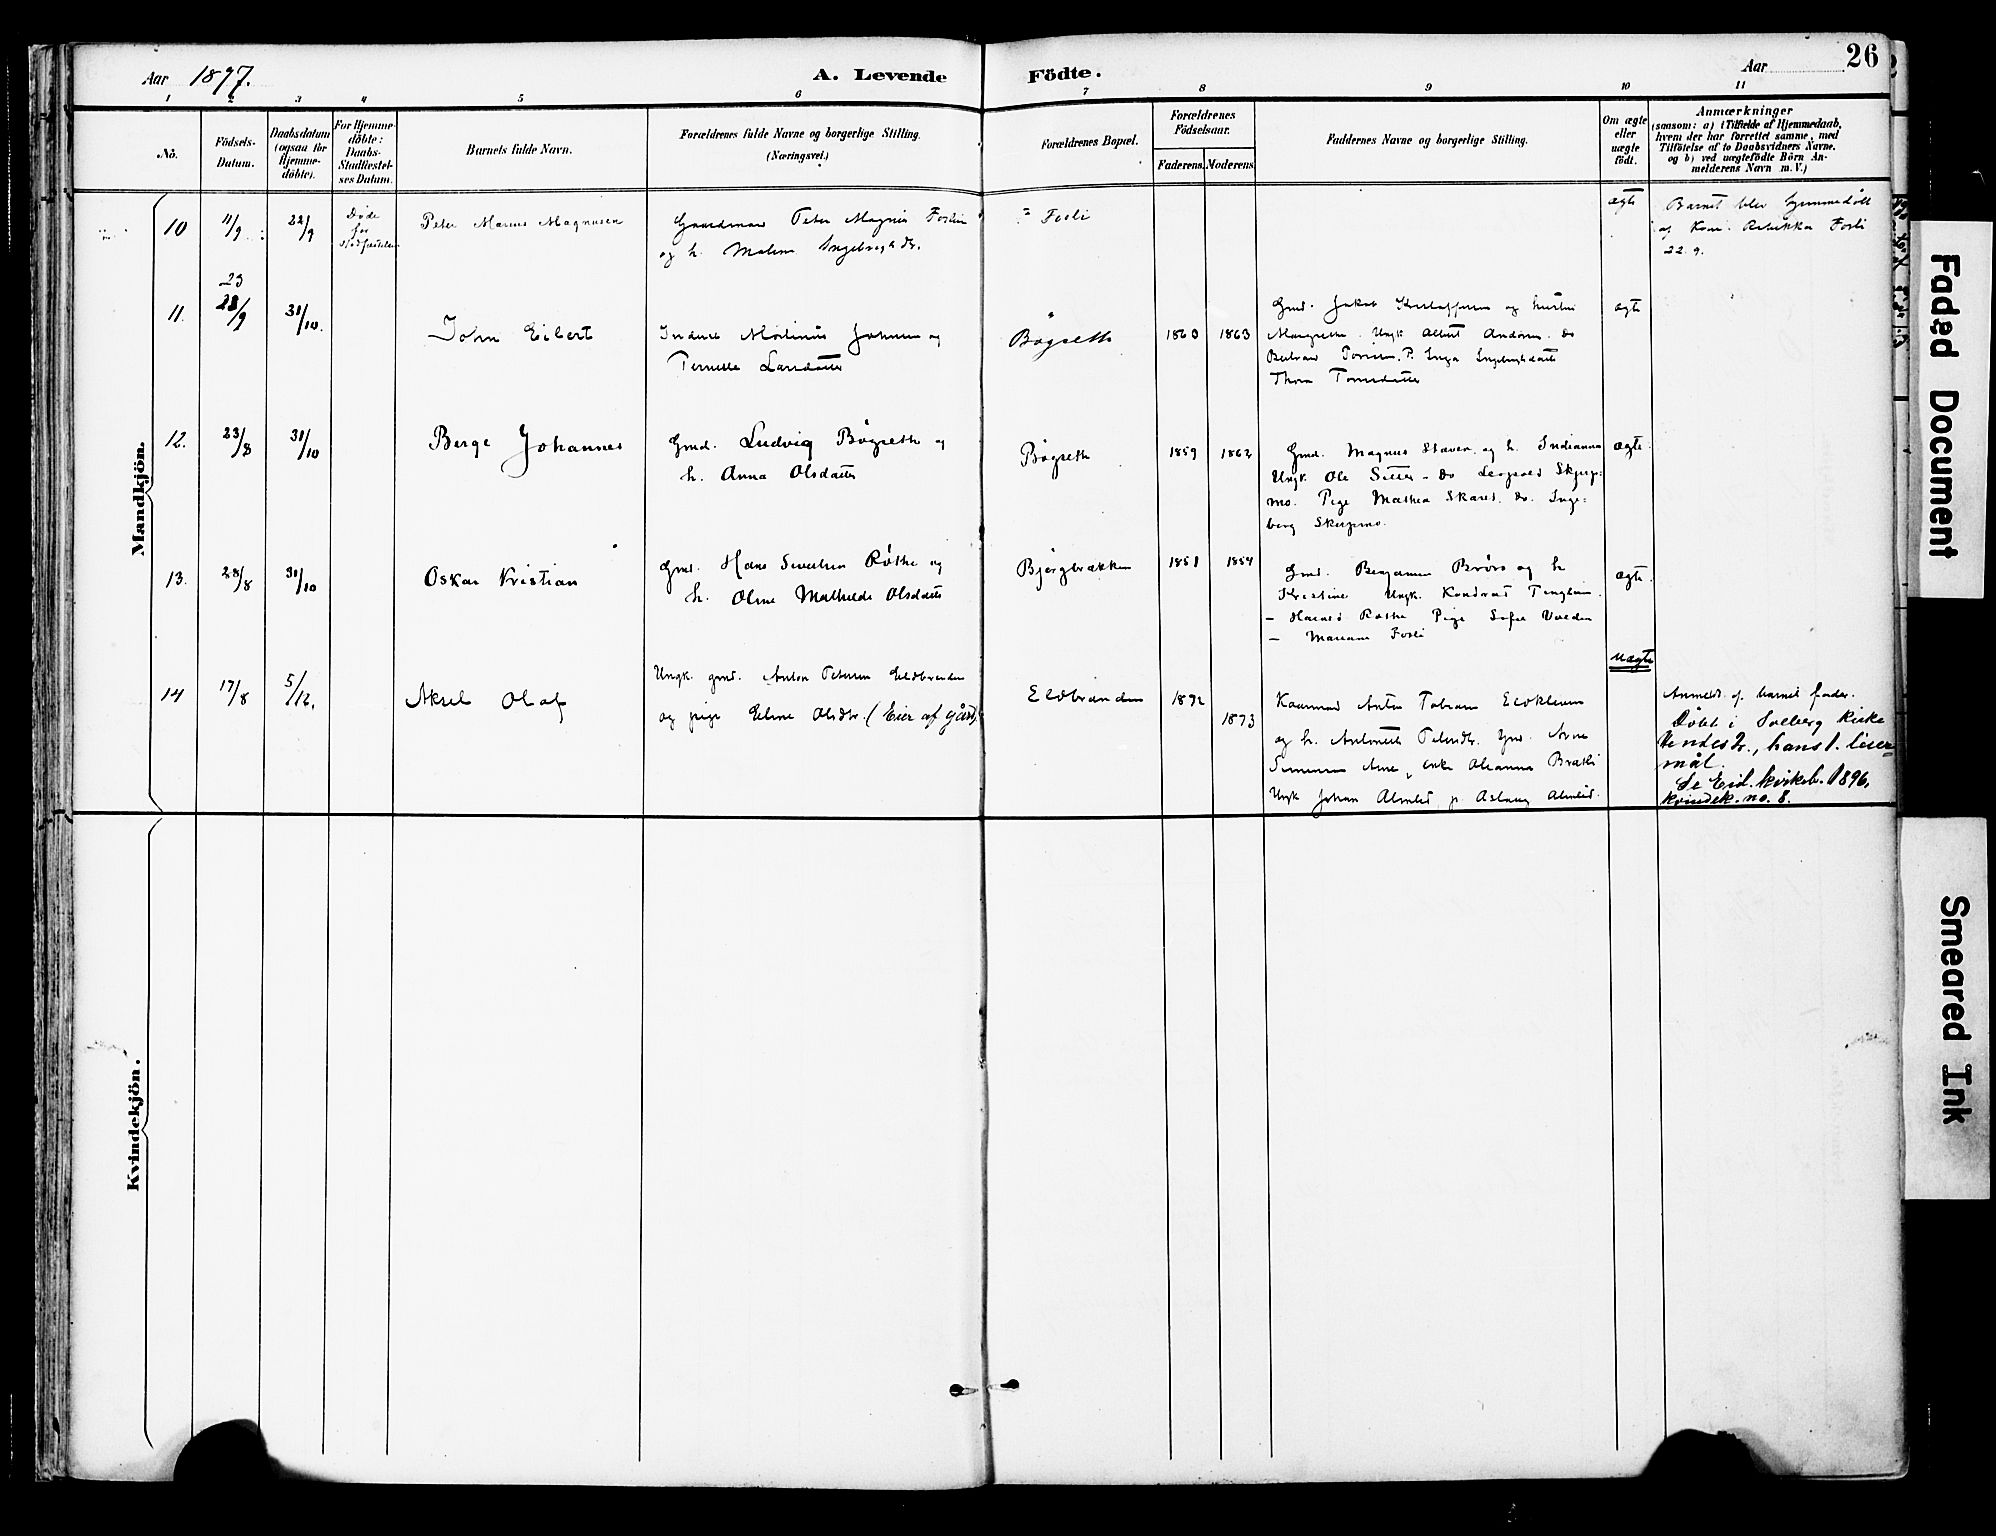 Aar 1897.
A. Levende Födte.
Aar 26
1 2 3 4 5 6 7 8 9 10 11
No.
Födsels-Datum.
Daabsdatum (ogsaa for Hjemme-döbte).
For Hjemme-döbte: Daabs-Stadfæstel-ses Datum.
Barnets fulde Navn.
Forældrenes fulde Navne og borgerlige Stilling. (Næringsvei.)
Forældrenes Bopæl.
Forældrenes Födselsaar.
Faderens. Moderens.
Faddernes Navne og borgerlige Stilling.
Om ægte eller uægte födt.
Anmærkninger
(saasom: a) i Tilfælde af Hjemmedaab, hvem der har forrettet samme, med Tilföielse af to Daabsvidners Navne. og b) ved uægtefödte Börn An-melderens Navn m. V.)
Mandkjön.
10 11/9 22/9 Døde før Stadfæstelse Peter Marius Magnusen
Gaardmand Peter Magnus Foslie
og h. Malene Ingebrigtsdr.
Fosli
ægte
Barnet blev hjemmedøbt
af Kone Rebekka Fosli
22.9.
11. 23 28/9 31/10. John Eibert
Inderst Martinus Johnsen og
Pernelle Larsdatter
Bøgseth 1860 1863
Gmd. Jakob Kristoffersen og hustru
Margrethe. Ungk. Albert Andersen. do
Thora Tomasdatter
ægte
12. 23/8 31/10 Berge Johannes
Gmd. Ludvig Bøgseth og
h. Anna Olsdatter
Bøgseth 1859 1862
Gmd. Magnus Staven og h. Indianna
Ungk. Ole Setter - do Leopold Skjerp-
mo. Pige Mathea Skaret. do. Inge-
borg Skerpmo.
ægte
13. 28/8 31/10 Oskar Kristian
Gmd. Hans Sivertsen Røthe og
h. Oline Mathilde Olsdatter
Bjørgbækken 1851 1854
Gmd. Benjamin Brørs og h.
Kristine Ungk. Kondrat
- Harald Røthe Pige Sofie Valden
- Mariane Fosli
ægte.
14 17/8 5/12. Aksel Olaf
Ungk. gmd. Anton Petersen Eldbranden
og pige Eline Olsdtr. (Eier af gård)
Eldbranden 1872 1873
Kaarmand Anton Tobiasen
og h. Antonette Gmd. Arne
Simonsen Aune, enke Oleanna Brækli
Ungk Johan Almlid p. Aslaug Almlid.
uægte
Anmeldt af barnets fader.
Døbt i Solberg kirke
hans 1. leier-
mål.
Se Eid. kirkeb. 1896,
kvindek. no. 8.
Kvindekjön.
Faded Document
Smeared Ink